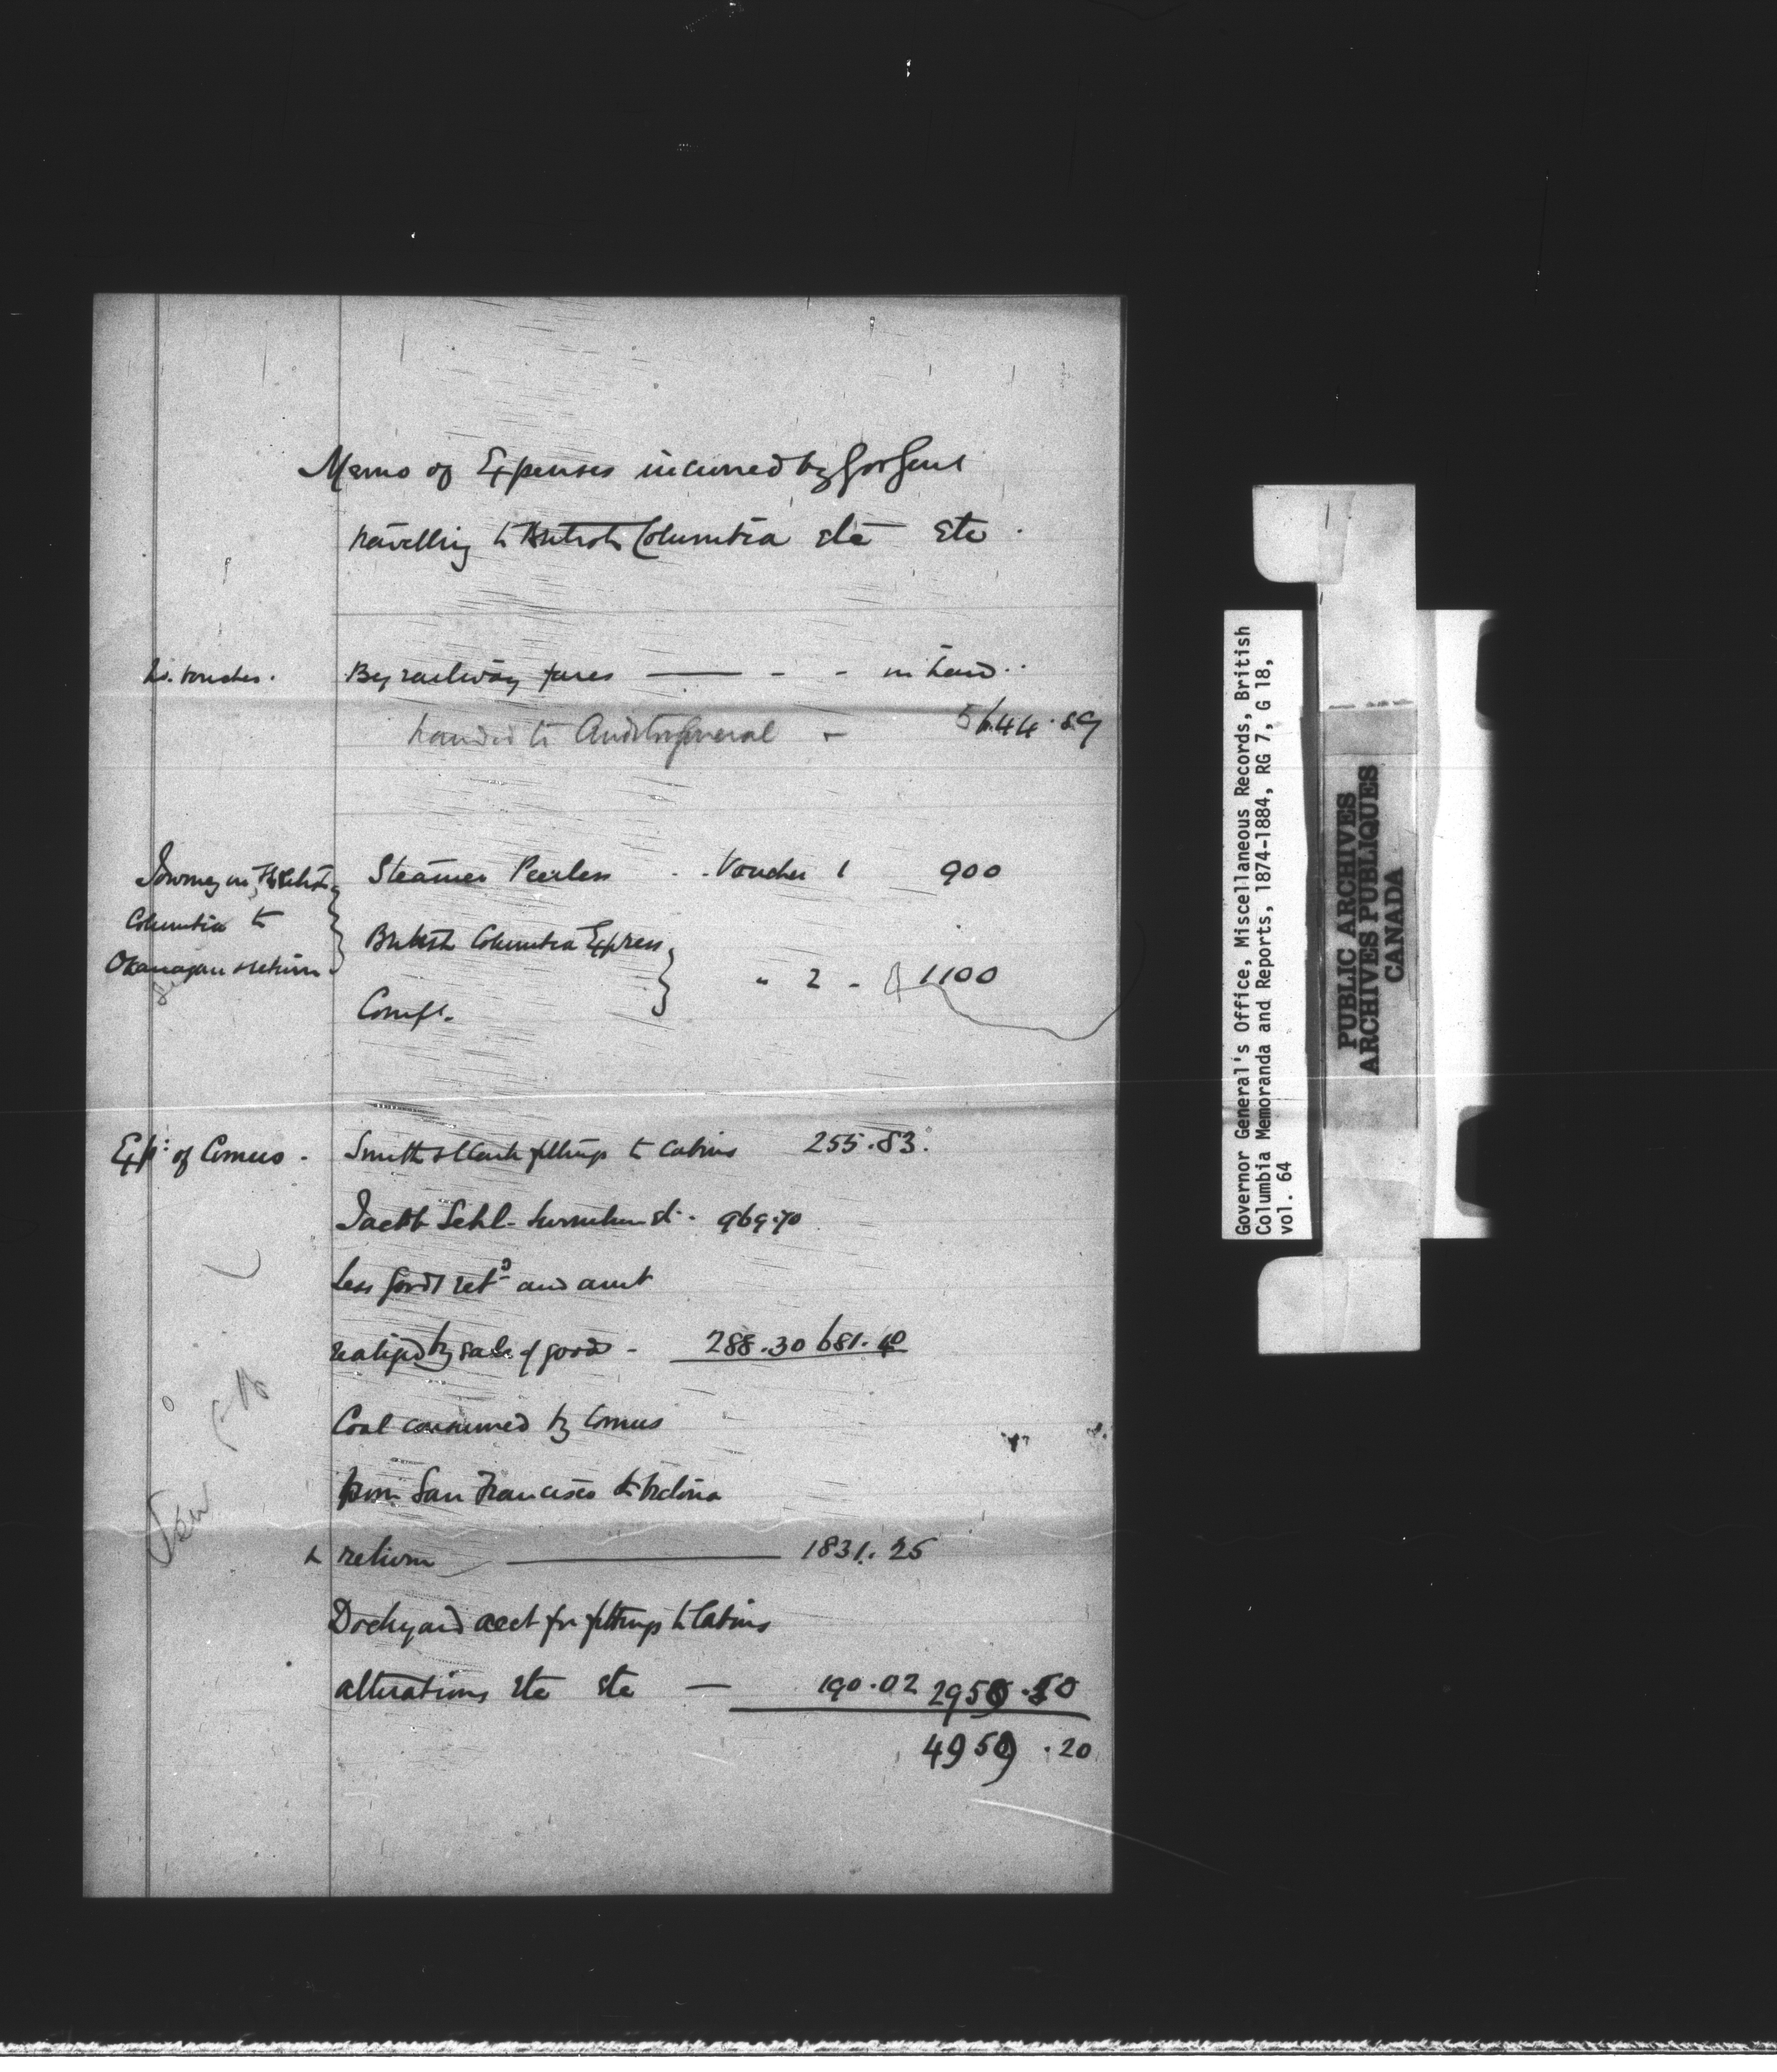 Memo of Expenses incurred by Gov Genl
travelling to British Columbia etc etc.
No. voucher. By railway fares — - - in hand..
handed to Auditor General - 5644.89
Journey in British Columbia to Okanagan & return
Steamer Peerless - - Voucher 1 900
British Columbia Express
Compy. " 2 - 1100
Exps: of Comus - Smith & Clark fittings to Cabins 255.83.
Jacob Sehl - furniture &c. 969.70
Less goods retd and amt
realized by sale of goods - 288.30 681.40
Coal consumed by Comus
from San Francisco to Victoria
& return — 1831.25
Dockyard acct for fittings to Cabins
alterations etc etc — 190.02 2958.50
4959.20
Governor General's Office, Miscellaneous Records, British
Columbia Memoranda and Reports, 1874-1884, RG 7, G 18,
vol. 64
PUBLIC ARCHIVES
ARCHIVES PUBLIQUES
CANADA